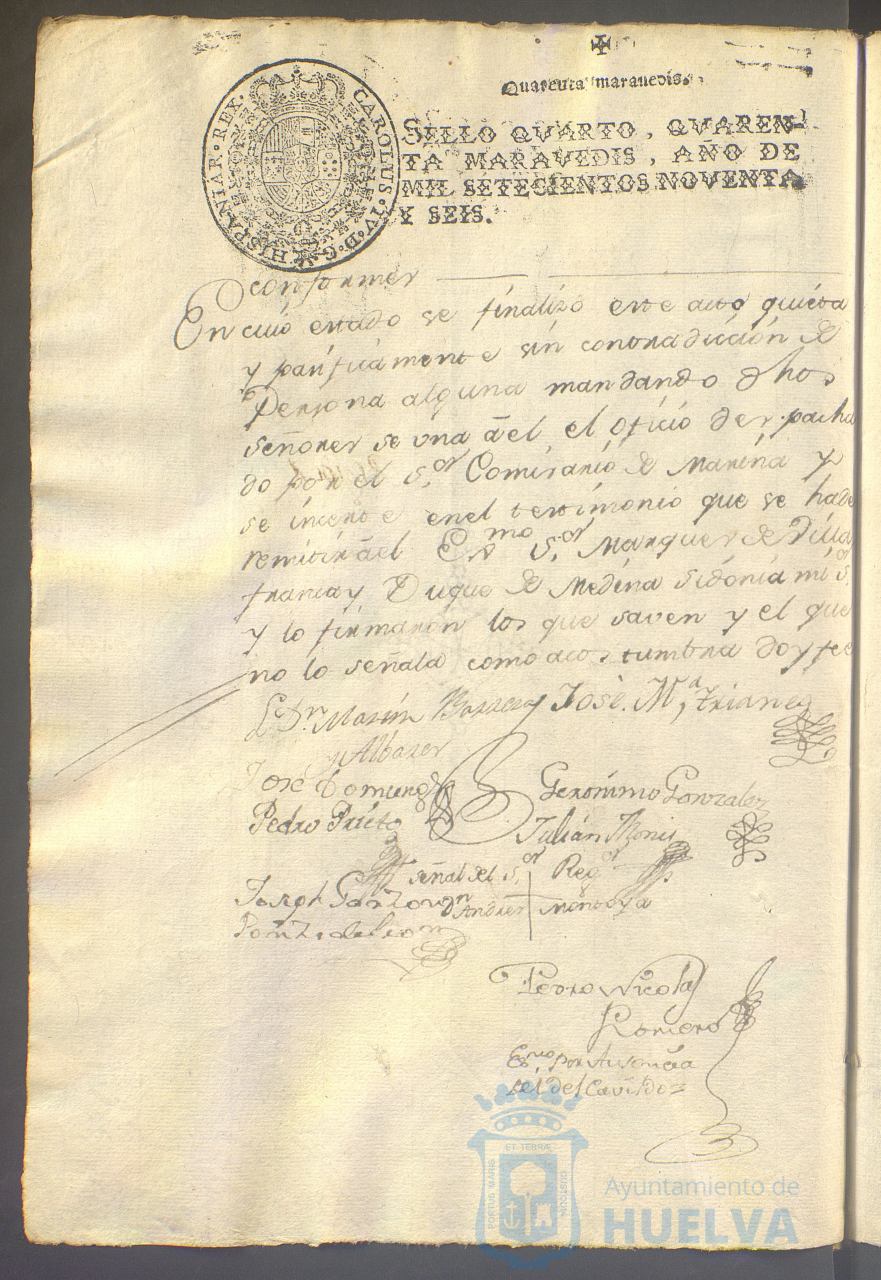 Quarenta maravedis.
CAROLUS · IV · D · G · HISPANIAR · REX ·
SELLO QVARTO, QVAREN-
TA MARAVEDIS, AÑO DE
MIL SETECIENTOS NOVENTA
Y SEIS.
conformes
En cuio estado se finalizó este acto quieta
y pacificamente sin contradiccion de
Persona alguna mandando dhos
señores se una àel el oficio despacha
do por el S.or Comisario de Marina y
se incerte enel testimonio que se hade
remitir àel Exmo S.or Marques de Villa
franca y Duque de Medina Sidonia mi S.or
y lo firmaron los que saven y el que
no lo señala como acostumbra doy fee
Ldo. Dn Martin Barrera y José. M.a Trianes
y Albarer
José Domung Geronimo Gonzalez
Pedro Prieto Julián Monis
señal del S.or Reg.or
Joseph Garzon Dn Andres Montoya
Ponze de Leon
Pedro Nicolas
Romero
Es.no por Ausencia
del del Cavildo=
ET TERRÆ
PORTUS MARIS
CUSTODIA
Ayuntamiento de
HUELVA